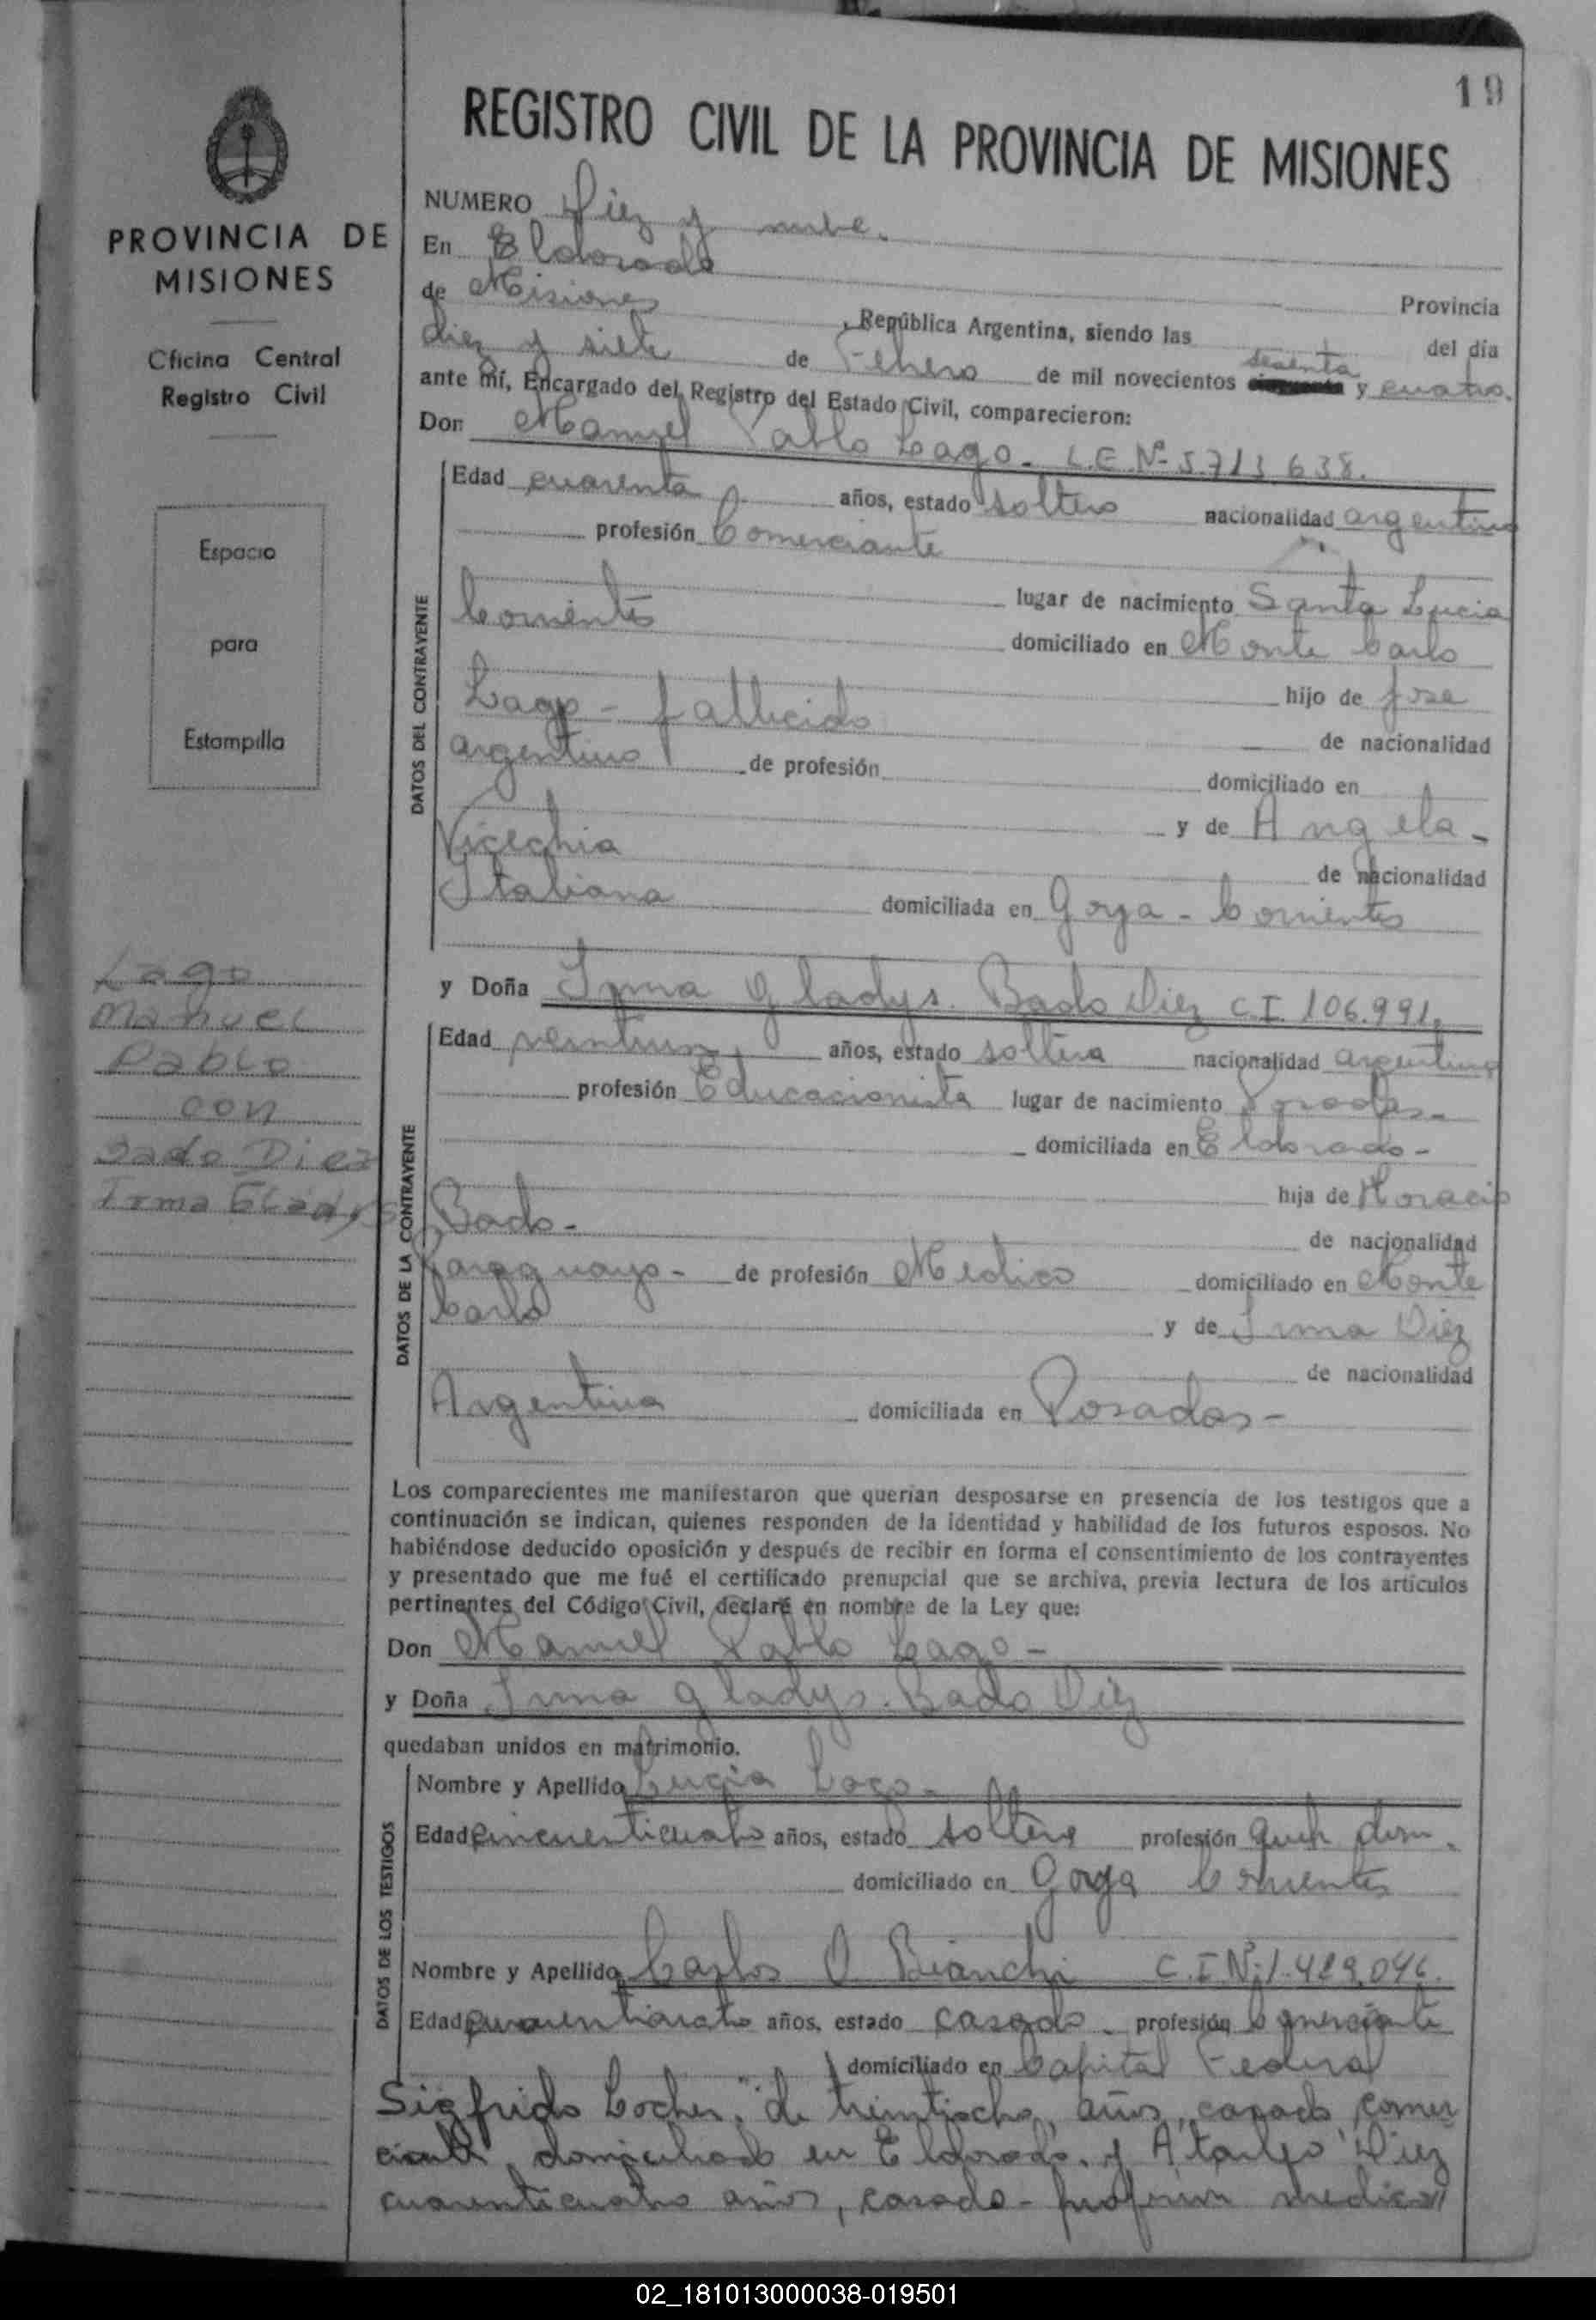 19
REGISTRO CIVIL DE LA PROVINCIA DE MISIONES
PROVINCIA DE
MISIONES
Oficina Central
Registro Civil
Espacio
para
Estampilla
Lago
Manuel
Pablo
con
Bado Diez
Irma Gladys
NUMERO Diez y nueve.
En Eldorado
Provincia
de Misiones, República Argentina, siendo las del día
diez y siete de Febrero de mil novecientos sesenta y cuatro.
ante mí, Encargado del Registro del Estado Civil, comparecieron:
Don Manuel Pablo Lago - L.E. Nº 5.713.638.
DATOS DEL CONTRAYENTE
Edad cuarenta años, estado soltero nacionalidad argentino
profesión Comerciante
lugar de nacimiento Santa Lucia
Corrientes domiciliado en Monte Carlo
hijo de Jose
Lago - fallecido de nacionalidad
argentino de profesión domiciliado en
y de Angela -
de nacionalidad
Italiana domiciliada en Goya - Corrientes
y Doña Irma Gladys Bado Diez C.I. 106.991.
DATOS DE LA CONTRAYENTE
Edad años, estado soltera nacionalidad argentina
profesión Educacionista lugar de nacimiento Posadas -
domiciliada en Eldorado -
hija de Horacio
Bado - de nacionalidad
Paraguayo - de profesión Medico domiciliado en Monte
Carlo y de Irma Diez
de nacionalidad
Argentina domiciliada en Posadas -
Los comparecientes me manifestaron que querían desposarse en presencia de los testigos que a
continuación se indican, quienes responden de la identidad y habilidad de los futuros esposos. No
habiéndose deducido oposición y después de recibir en forma el consentimiento de los contrayentes
y presentado que me fué el certificado prenupcial que se archiva, previa lectura de los artículos
pertinentes del Código Civil, declaré en nombre de la Ley que:
Don Manuel Pablo Lago -
y Doña Irma Gladys Bado Diez
quedaban unidos en matrimonio.
DATOS DE LOS TESTIGOS
Nombre y Apellido Lucia Lago -
Edad cincuenticuatro años, estado soltera profesión
domiciliado en Goya Corrientes
Nombre y Apellido Carlos O Bianchi C.I. Nº 1.429.046.
Edad cuarenticuatro años, estado casado - profesión Comerciante
domiciliado en Capital Federal
Sigfrido de treintiocho años, casado, comer
ciante, domiciliado en Eldorado. y Diez
cuarenticuatro años, casado - profesion medico
02_181013000038-019501